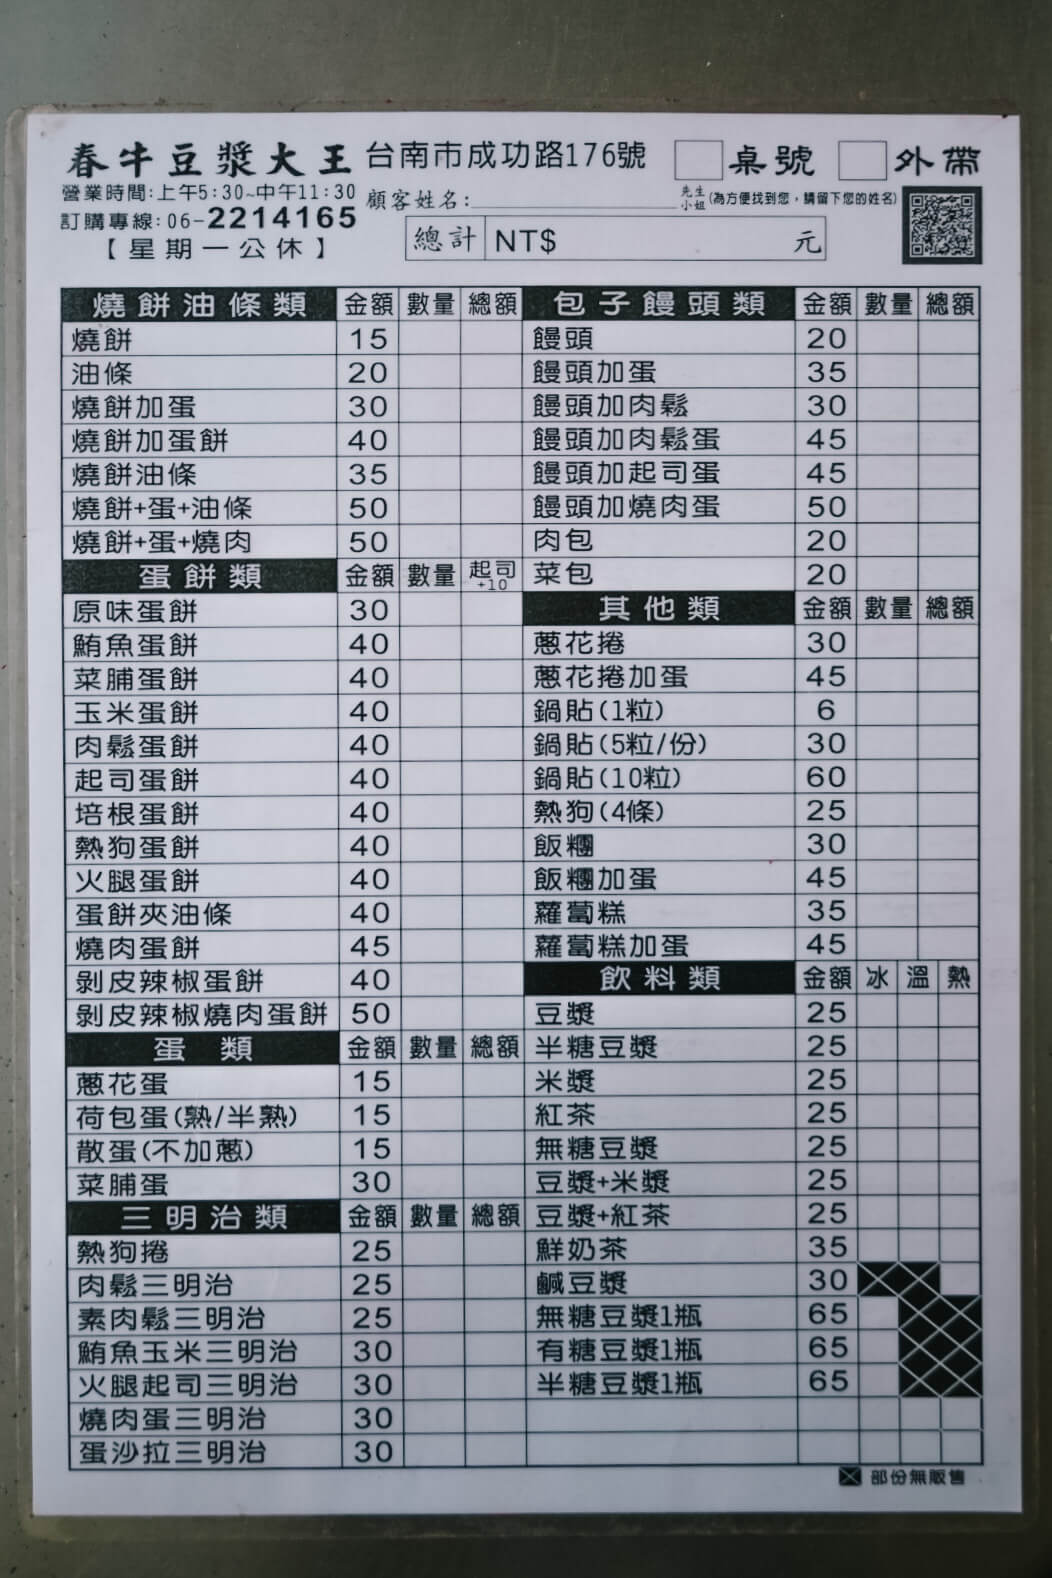 春牛豆漿大王 台南市成功路176號 桌號 外帶
營業時間:上午5:30~中午11:30
訂購專線:06-2214165
【星期一公休】
顧客姓名: 先生 小姐 (為方便找到您,請留下您的姓名)
總計 NT$ 元
燒餅油條類 金額 數量 總額
燒餅 15
油條 20
燒餅加蛋 30
燒餅加蛋餅 40
燒餅油條 35
燒餅+蛋+油條 50
燒餅+蛋+燒肉 50
蛋餅類 金額 數量 起司+10
原味蛋餅 30
鮪魚蛋餅 40
菜脯蛋餅 40
玉米蛋餅 40
肉鬆蛋餅 40
起司蛋餅 40
培根蛋餅 40
熱狗蛋餅 40
火腿蛋餅 40
蛋餅夾油條 40
燒肉蛋餅 45
剝皮辣椒蛋餅 40
剝皮辣椒燒肉蛋餅 50
蛋類 金額 數量 總額
蔥花蛋 15
荷包蛋(熟/半熟) 15
散蛋(不加蔥) 15
菜脯蛋 30
三明治類 金額 數量 總額
熱狗捲 25
肉鬆三明治 25
素肉鬆三明治 25
鮪魚玉米三明治 30
火腿起司三明治 30
燒肉蛋三明治 30
蛋沙拉三明治 30
包子饅頭類 金額 數量 總額
饅頭 20
饅頭加蛋 35
饅頭加肉鬆 30
饅頭加肉鬆蛋 45
饅頭加起司蛋 45
饅頭加燒肉蛋 50
肉包 20
菜包 20
其他類 金額 數量 總額
蔥花捲 30
蔥花捲加蛋 45
鍋貼(1粒) 6
鍋貼(5粒/份) 30
鍋貼(10粒) 60
熱狗(4條) 25
飯糰 30
飯糰加蛋 45
蘿蔔糕 35
蘿蔔糕加蛋 45
飲料類 金額 冰 溫 熱
豆漿 25
半糖豆漿 25
米漿 25
紅茶 25
無糖豆漿 25
豆漿+米漿 25
豆漿+紅茶 25
鮮奶茶 35
鹹豆漿 30
無糖豆漿1瓶 65
有糖豆漿1瓶 65
半糖豆漿1瓶 65
部份無販售